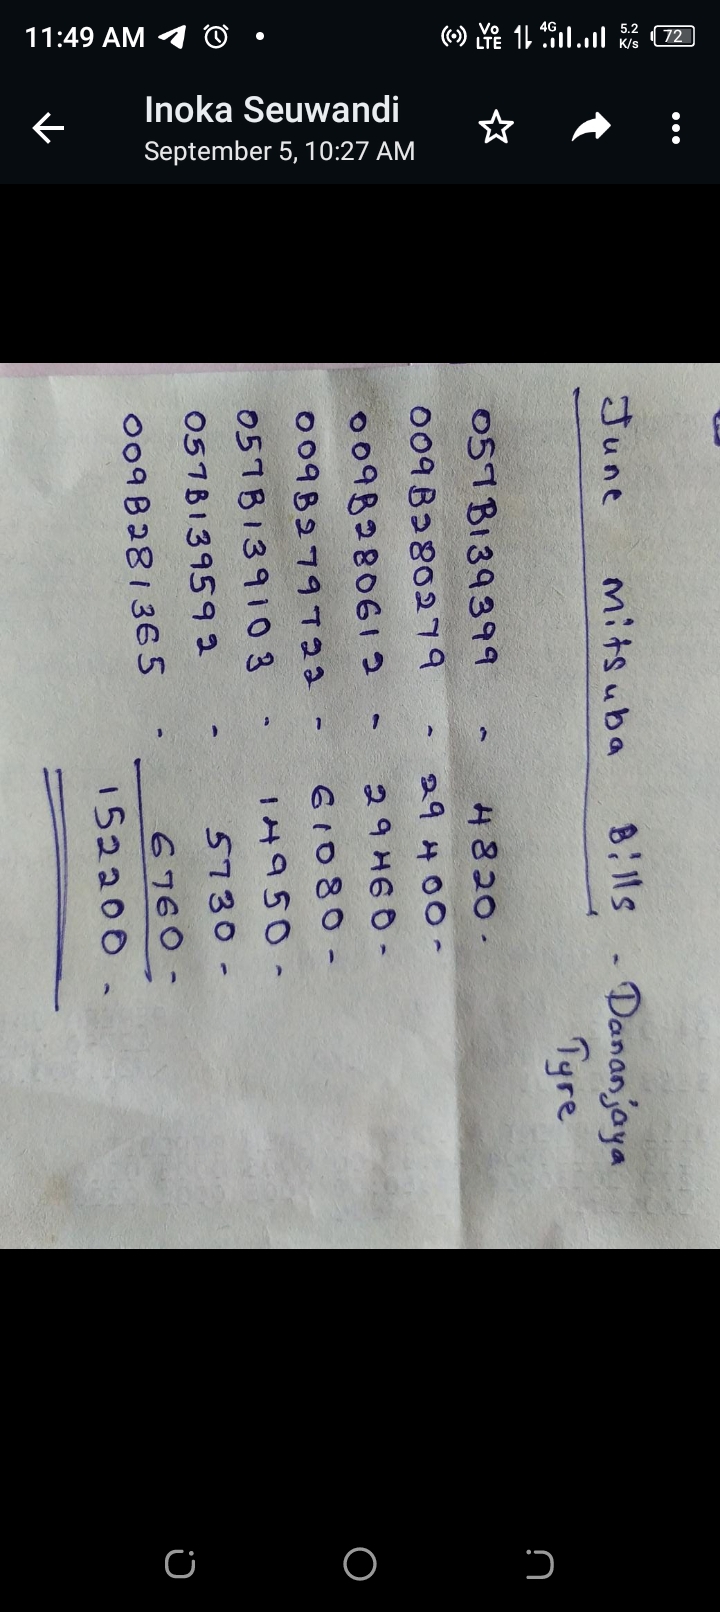 11:49 AM
Vo LTE 4G 5.2 K/s 72
Inoka Seuwandi
September 5, 10:27 AM
June Mitsuba Bills - Dananjaya
Tyre
057B139399 - 4820.
009B280279 - 29400-
009B280612 - 29460-
009B279722 - 61080-
057B139103 - 14950-
057B139592 - 5730-
009B281365 - 6760-
152200-